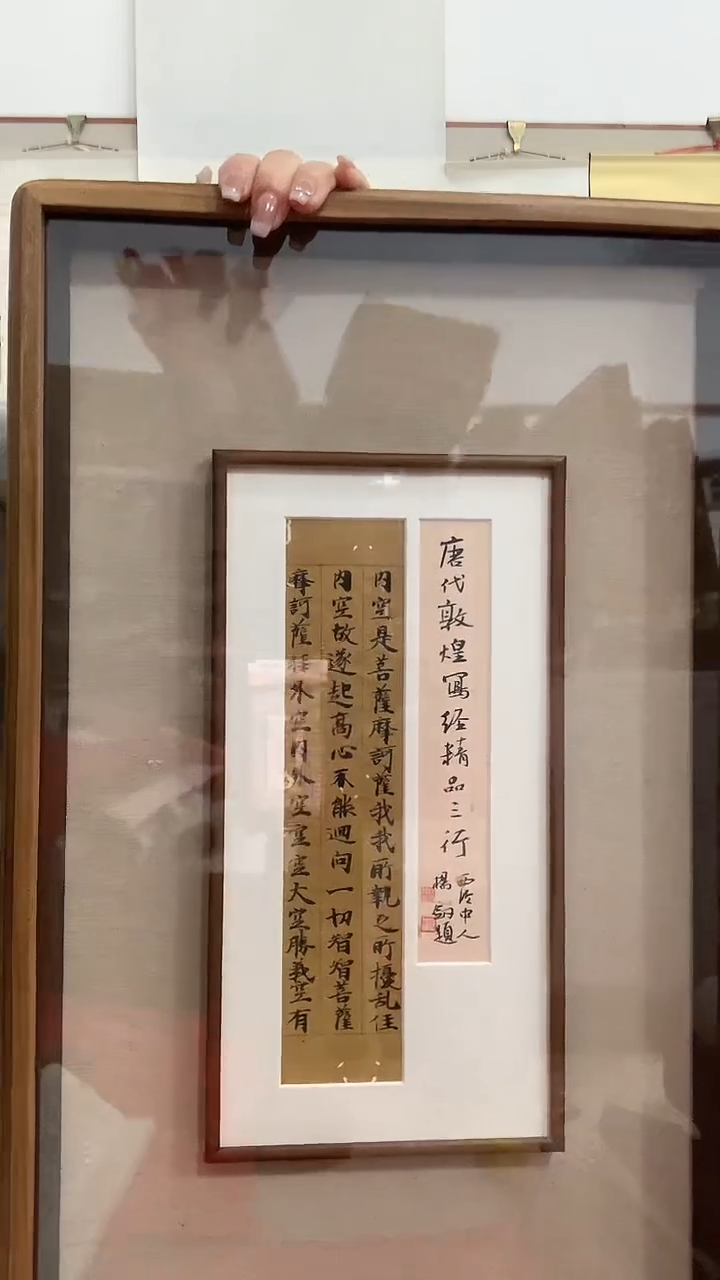 唐代敦煌寫经精品三行
西泠中人
楊 題
内空是菩薩摩訶薩我我所執之所擾乱住
内空故遂起高心不能迴向一切智智菩薩
摩訶薩住外空内外空空空大空勝義空有